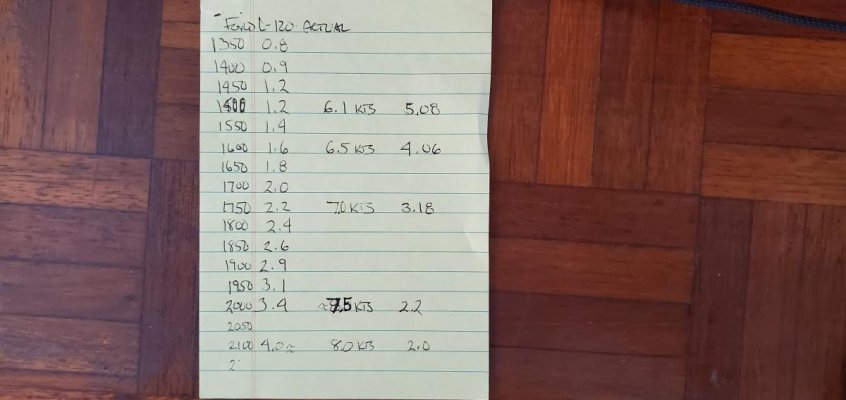 Ford L-120 ACTUAL
1350 0.8
1400 0.9
1450 1.2
1500 1.2 6.1 KTS 5.08
1550 1.4
1600 1.6 6.5 KTS 4.06
1650 1.8
1700 2.0
1750 2.2 7.0 KTS 3.18
1800 2.4
1850 2.6
1900 2.9
1950 3.1
2000 3.4 ≈7.5 KTS 2.2
2050
2100 4.0≈ 8.0 KTS 2.0
2